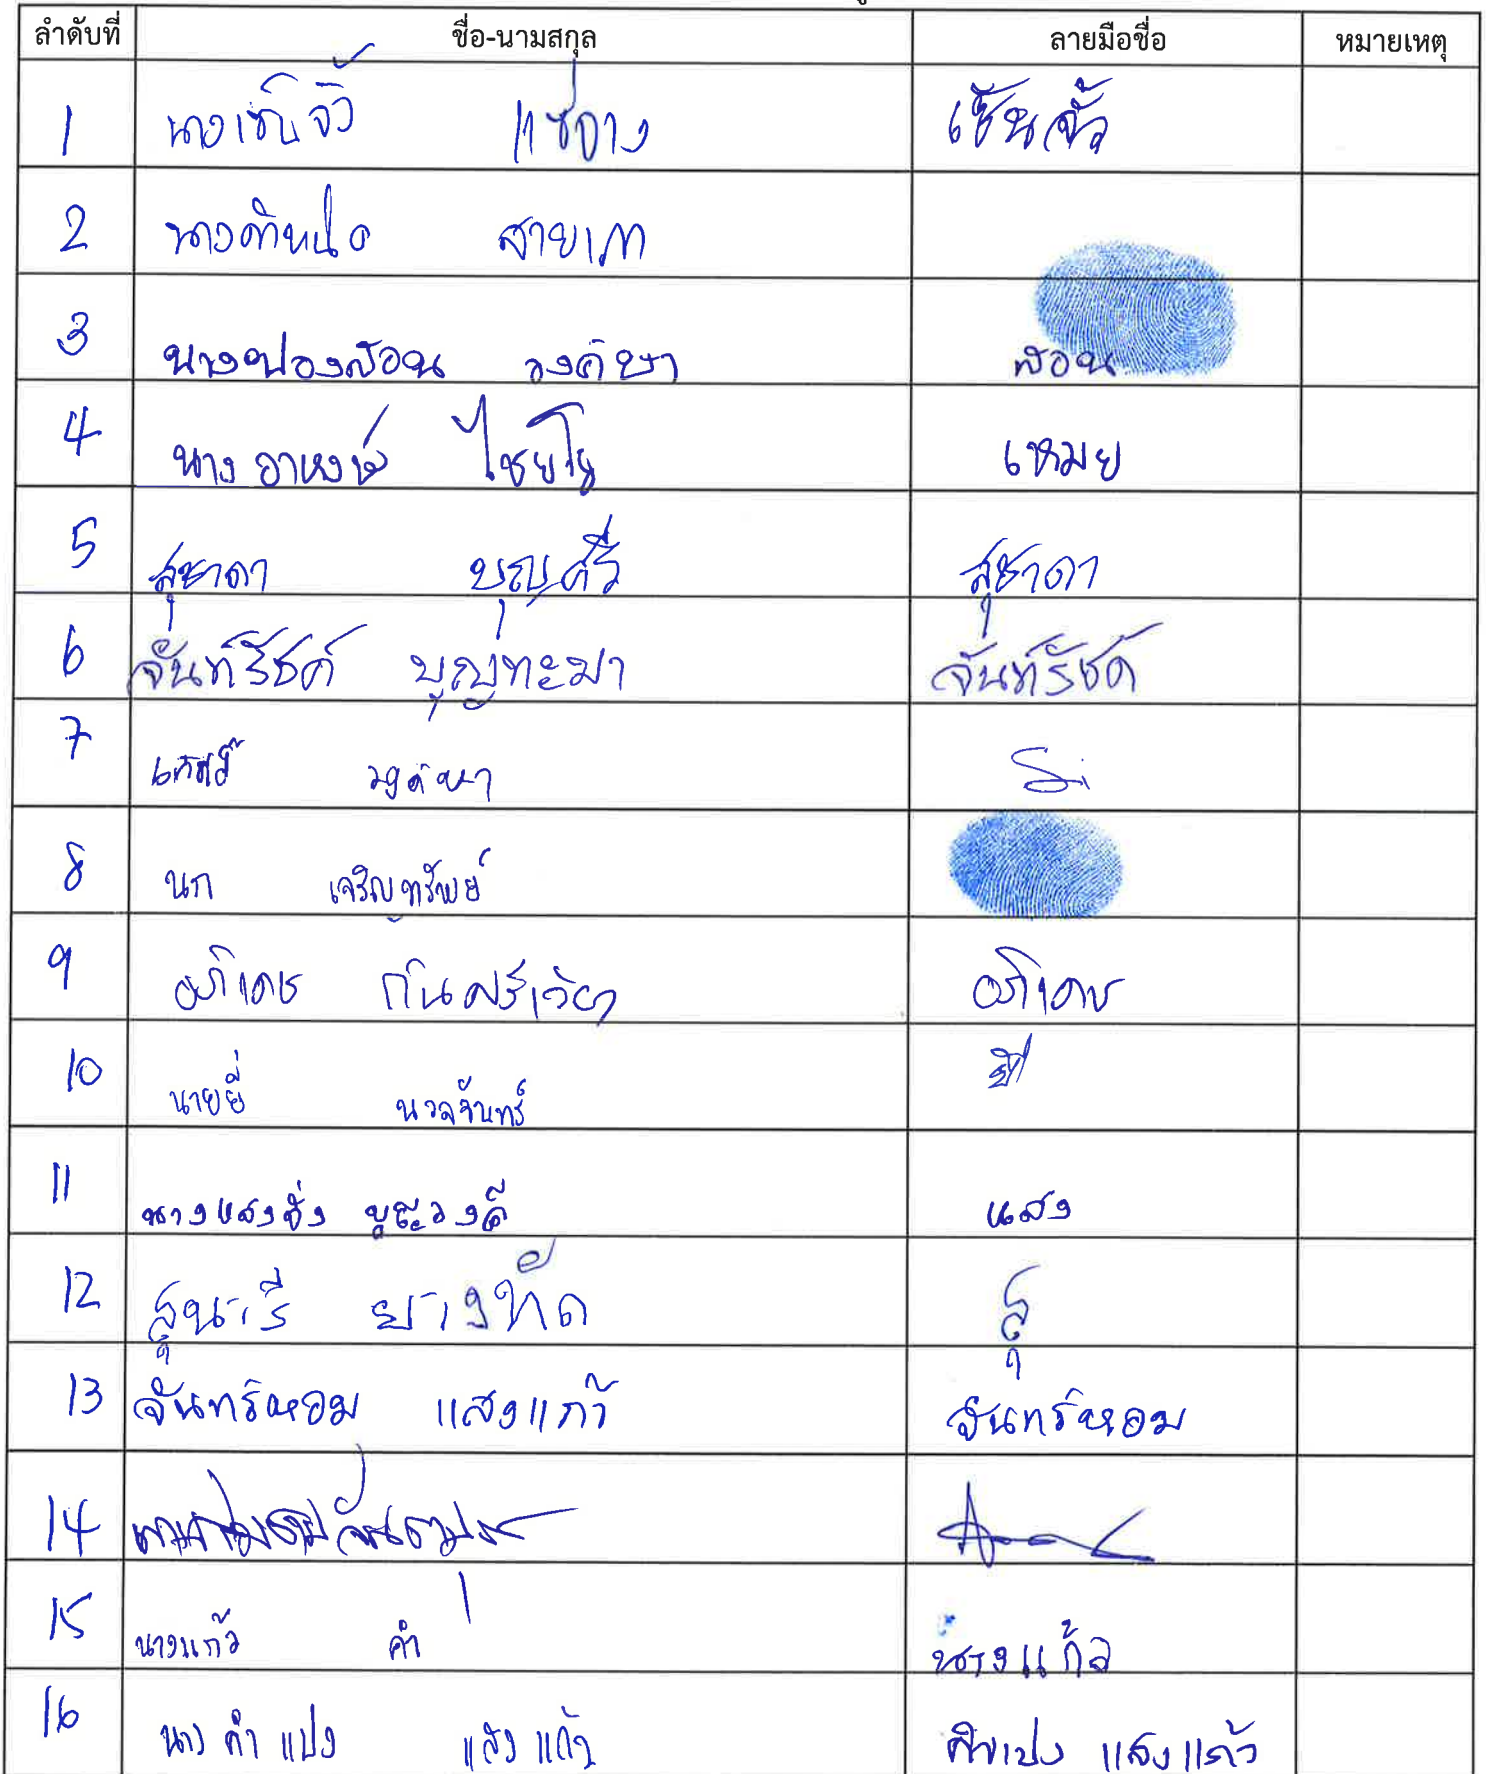 ลำดับที่ ชื่อ-นามสกุล ลายมือชื่อ หมายเหตุ
1 นางเซ็นจิ้ว แซ่จาง เซ็นจิ้ว
2 สายเภา
3 นางปองส้อน วงค์ษา ส้อน
4 นาง ไชยโย เหมย
5 สุชาดา บุญศรี สุชาดา
6 จันทร์รัชต์ บุญทะมา จันทร์รัชต์
7
8 นก เจริญทรัพย์
9 อภิเดช กันศรีเวียง อภิเดช
10 นายยี่ นวลจันทร์ ยี่
11 นางแสงซิ่ง บุญวงค์ แสง
12 สุนารี ยางทัด สุ
13 จันทร์หอม แสงแก้ว จันทร์หอม
14
15 นางแก้ว คำ นางแก้ว
16 นาง คำ แปง แสง แก้ว คำแปง แสงแก้ว